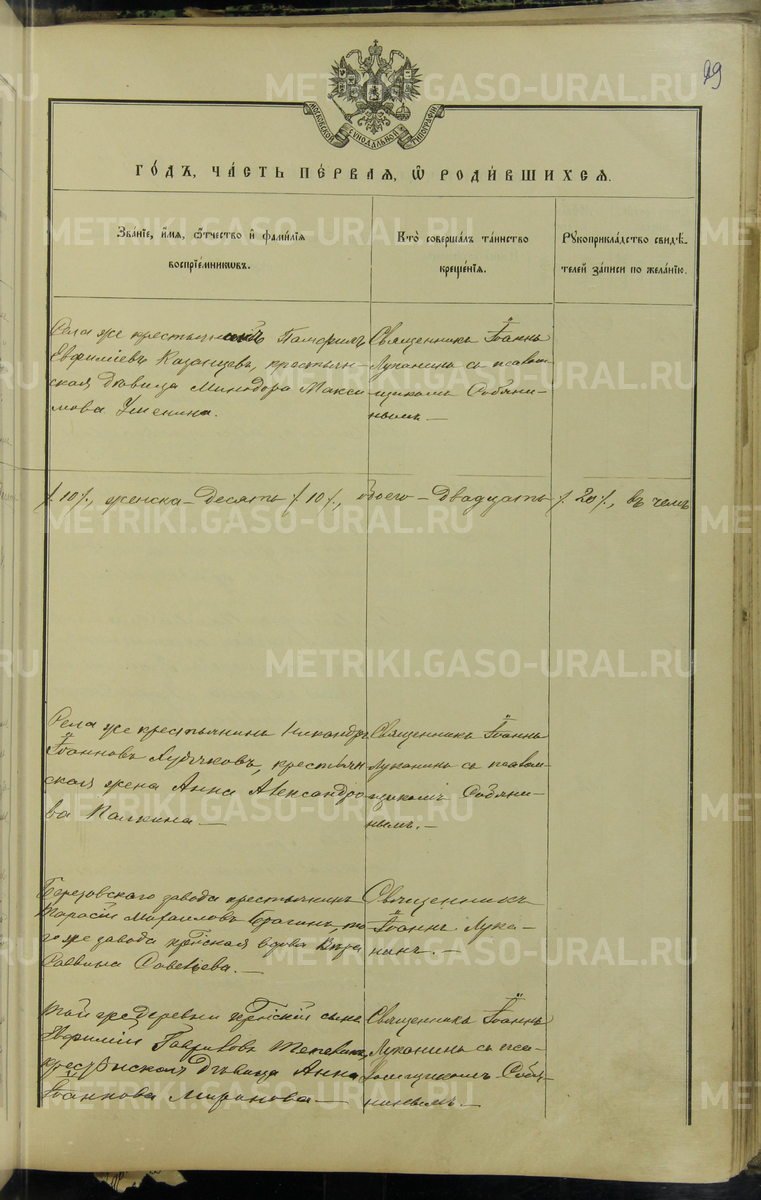 29
МОСКОВСКОЙ СѴНОДАЛЬНОЙ ТИПОГРАФІИ
ГО́ДЪ, ЧА́СТЬ ПЕ́РВАЯ, Ѿ РОДИ́ВШИХСЯ.
Зва́нїе, и҆́мя, ѻ҆́тчество и҆ фамі́лїя
воспрїе́мникѡвъ.
Кто̀ соверша́лъ та́инство
креще́нїя.
Рꙋкоприкла́дство свидѣ́-
телей за́писи по жела́нїю.
Села же крестьянинъ Памфилъ
Евфиміевъ Казанцевъ, крестьян-
ская дѣвица Минодора Макси-
мова
Священникъ Іоаннъ
Луканинъ съ псалом-
щикомъ Собяни-
нымъ. —
/. 10 /., женска – десять /. 10 /., обоего – двадцать /. 20 /., въ чемъ
Села же крестьянинъ Никандръ
Іоанновъ крестьян
ская жена Анна Александро-
ва Палкина —
Священникъ Іоаннъ
Луканинъ съ псалом-
щикомъ Собяни-
нымъ. —
Березовскаго завода крестьянинъ
Тарасій Михаиловъ Брагинъ, то-
го же завода кр-нская вдова Вѣра
Саввина —
Священникъ
Іоаннъ Лука-
нинъ. —
Той же деревни сынъ
Евфимій Гавриловъ
крестьянская дѣвица Анна
Іоаннова Миронова —
Священникъ Іоаннъ
Луканинъ съ пса-
ломщикомъ Собя-
нинымъ —
METRIKI.GASO-URAL.RU